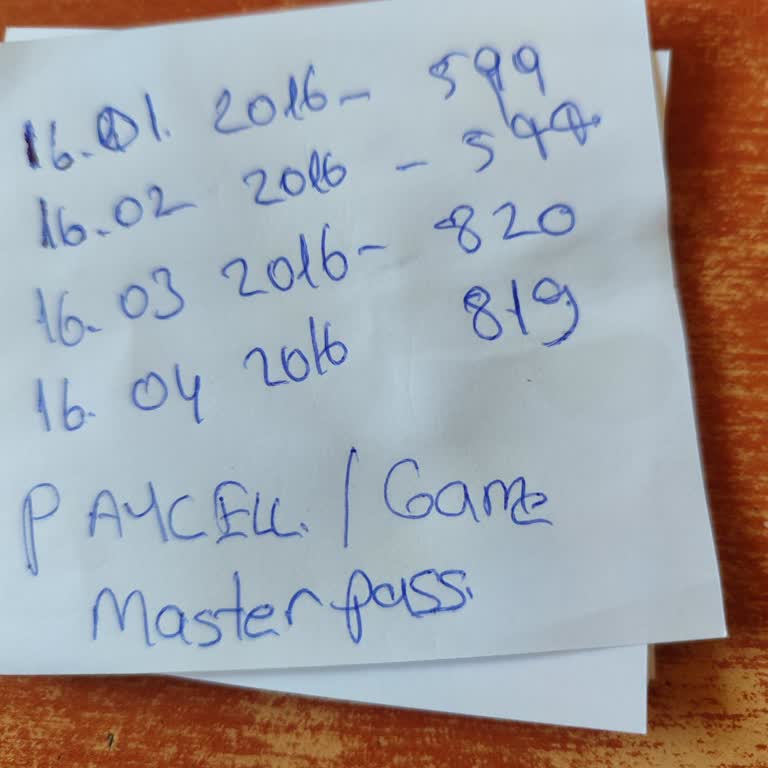 16.01. 2016- 599
16.02 2016 - 599
16. 03 2016- 820
16. 04 2016 819
PAYCELL. / Game
Masterpass.